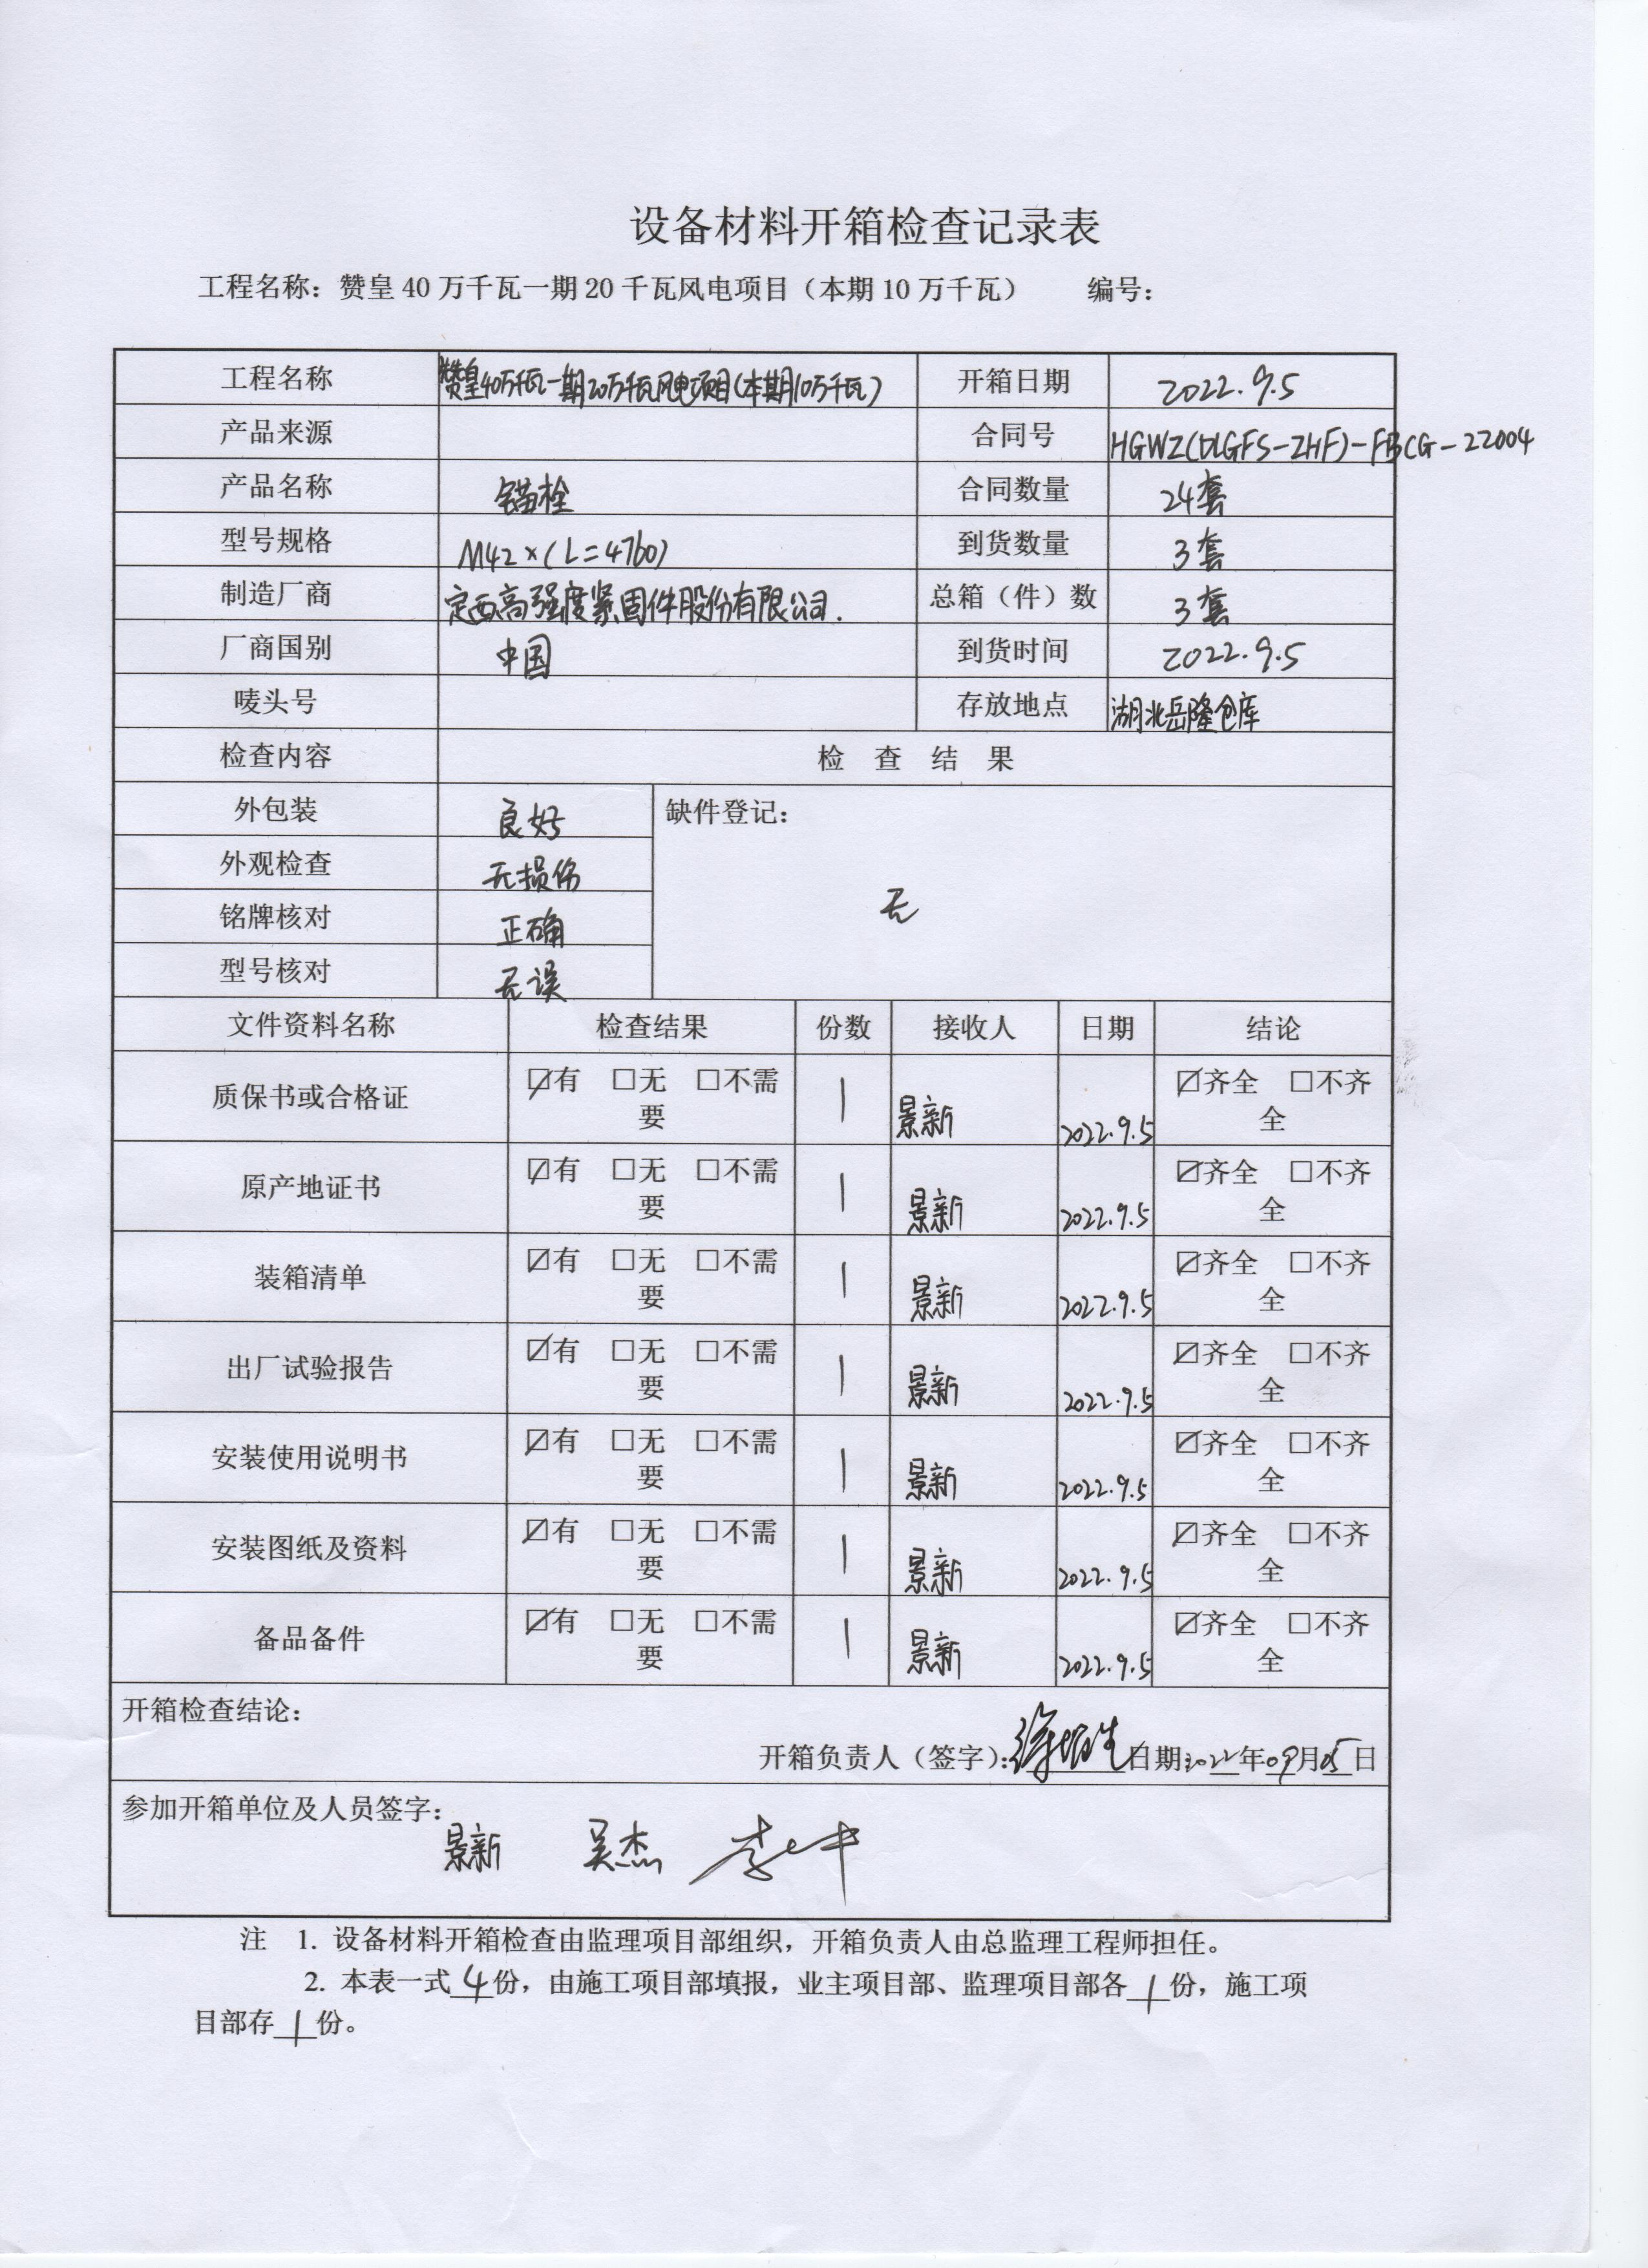 设备材料开箱检查记录表
工程名称：赞皇 40 万千瓦一期 20 千瓦风电项目（本期 10 万千瓦） 编号：
工程名称 赞皇40万千瓦一期20万千瓦风电项目(本期10万千瓦) 开箱日期 2022.9.5
产品来源 合同号 HGWZ(DLGFS-ZHF)-FBCG-22004
产品名称 锚栓 合同数量 24套
型号规格 M42×(L=4760) 到货数量 3套
制造厂商 定西高强度紧固件股份有限公司. 总箱（件）数 3套
厂商国别 中国 到货时间 2022.9.5
唛头号 存放地点 湖北岳隆仓库
检查内容 检 查 结 果
外包装 良好 缺件登记：
外观检查 无损伤
无
铭牌核对 正确
型号核对 无误
文件资料名称 检查结果 份数 接收人 日期 结论
质保书或合格证 ☑有 □无 □不需要 1 景新 2022.9.5 ☑齐全 □不齐全
原产地证书 ☑有 □无 □不需要 1 景新 2022.9.5 ☑齐全 □不齐全
装箱清单 ☑有 □无 □不需要 1 景新 2022.9.5 ☑齐全 □不齐全
出厂试验报告 ☑有 □无 □不需要 1 景新 2022.9.5 ☑齐全 □不齐全
安装使用说明书 ☑有 □无 □不需要 1 景新 2022.9.5 ☑齐全 □不齐全
安装图纸及资料 ☑有 □无 □不需要 1 景新 2022.9.5 ☑齐全 □不齐全
备品备件 ☑有 □无 □不需要 1 景新 2022.9.5 ☑齐全 □不齐全
开箱检查结论：
开箱负责人（签字）： 日期:2022年09月05日
参加开箱单位及人员签字：
景新 吴杰
注 1. 设备材料开箱检查由监理项目部组织，开箱负责人由总监理工程师担任。
2. 本表一式 4 份，由施工项目部填报，业主项目部、监理项目部各 1 份，施工项
目部存 1 份。